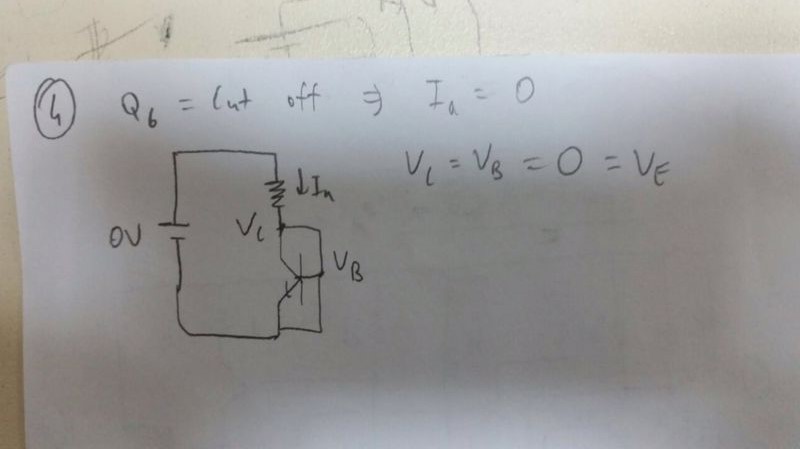 4 Q6 = Cut off ⇒ Ia = 0
VC = VB = 0 = VE
↓In
0V
VC
VB